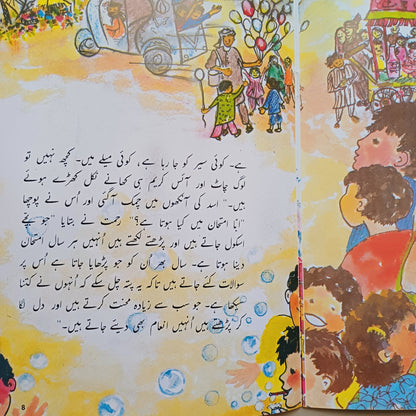 ہے۔ کوئی سیر کو جا رہا ہے، کوئی میلے میں۔ کچھ نہیں تو
لوگ چاٹ اور آئس کریم ہی کھانے نکل کھڑے ہوئے
ہیں۔" اسد کی آنکھوں میں چمک آگئی اور اُس نے پوچھا
"انّا امتحان میں کیا ہوتا ہے؟" رحمت نے بتایا "جو بچّے
اسکول جاتے ہیں اور پڑھتے لکھتے ہیں اُنہیں ہر سال امتحان
دینا ہوتا ہے۔ سال بھر اُن کو جو پڑھایا جاتا ہے اُس پر
سوالات کیے جاتے ہیں تاکہ یہ پتہ چل سکے کہ اُنہوں نے کتنا
سیکھا ہے۔ جو سب سے زیادہ محنت کرتے ہیں اور دل لگا
کر پڑھتے ہیں اُنہیں انعام بھی دیئے جاتے ہیں۔"
8